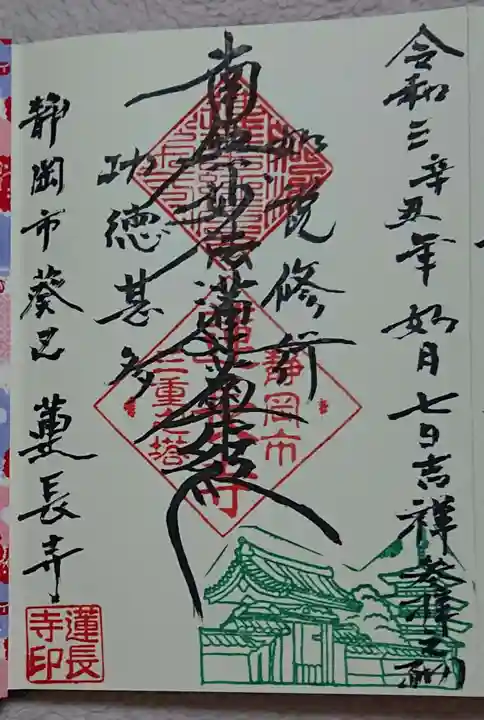 令和三辛丑年如月七日吉祥参拝之砌
如説修行
南無妙法蓮華経
功徳甚多
静岡市葵区
蓮長寺
静岡市
蓮長寺
三重之塔
蓮長
寺印